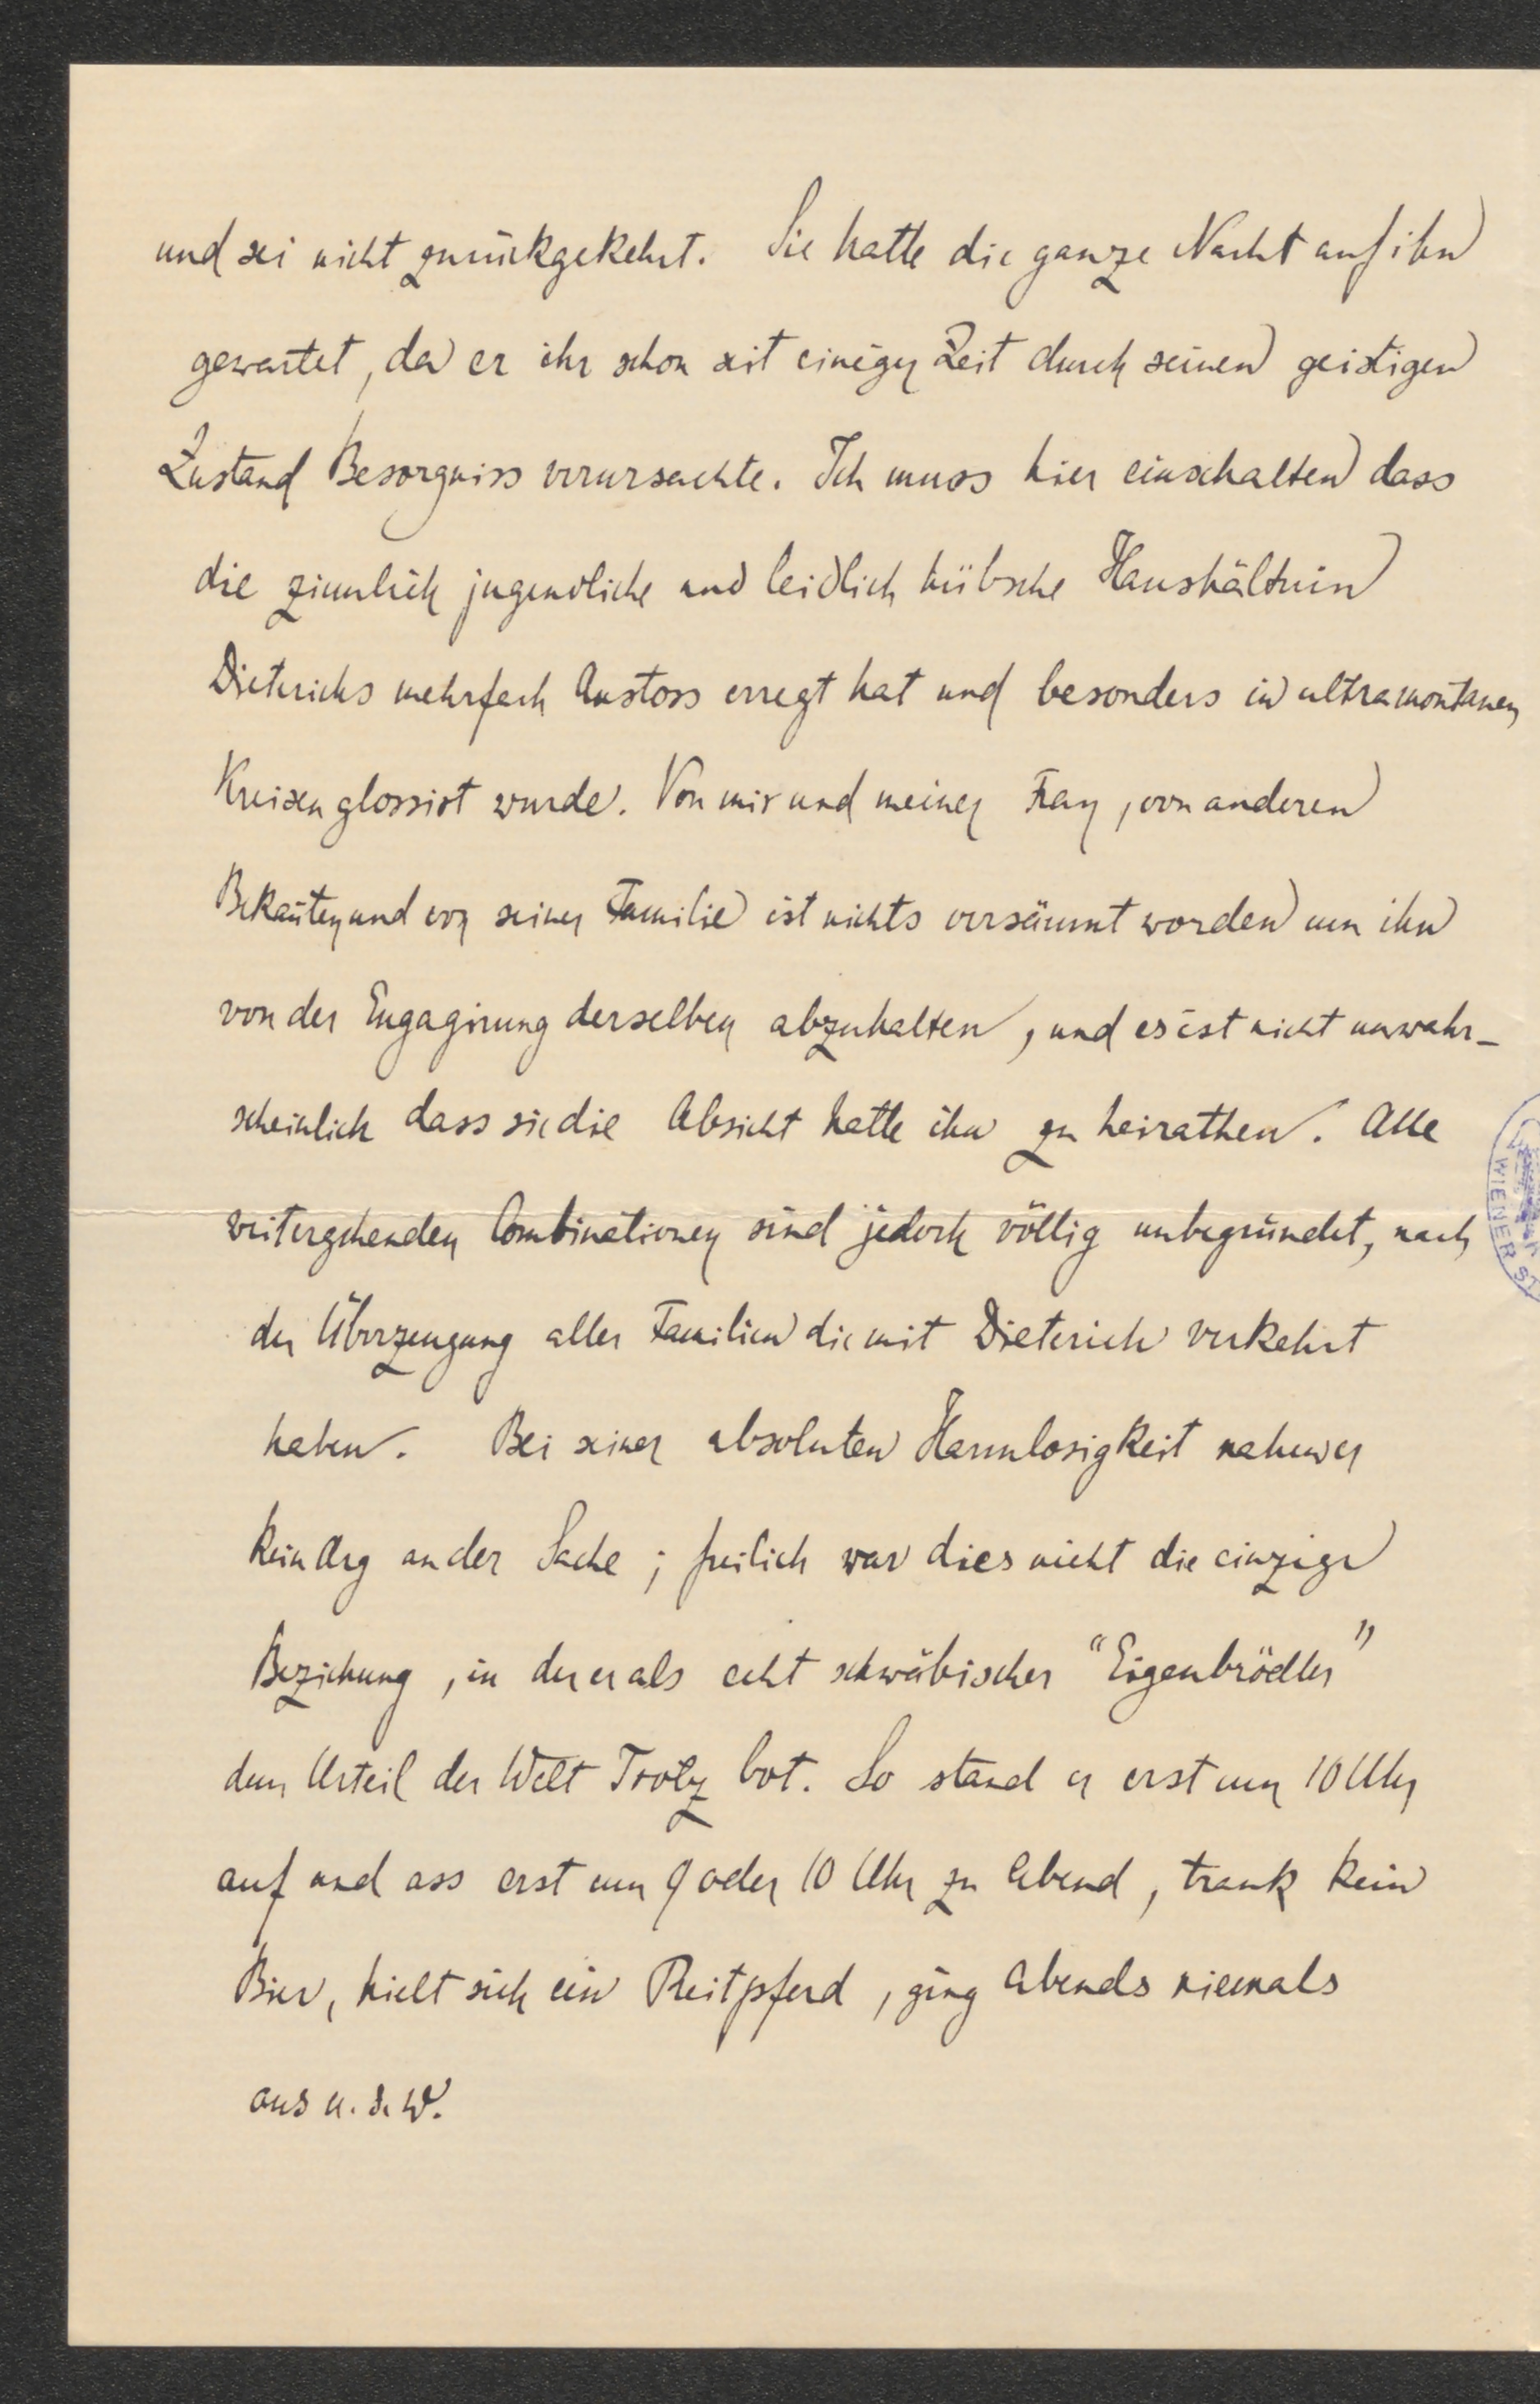 und sei nicht zurückgekehrt. Sie hatte die ganze Nacht auf ihn
gewartet, da er ihr schon seit einiger Zeit durch seinen geistigen
Zustand Besorgniss verursachte. Ich muss hier einschalten dass
die ziemlich jugendliche und leidlich hübsche Haushälterin
Dieterichs mehrfach Anstoss erregt hat und besonders in ultramontanen
Kreisen glossirt wurde. Von mir und meiner Frau, von anderen
Bekannten und von seiner Familie ist nichts versäumt worden um ihn
von der Engagirung derselben abzuhalten, und es ist nicht unwahr-
scheinlich dass sie die Absicht hatte ihn zu heirathen. Alle
weitergehenden Combinationen sind jedoch völlig unbegründet, nach
der Überzeugung aller Familien die mit Dieterich verkehrt
haben. Bei seiner absoluten Harmlosigkeit nahm er
kein Arg an der Sache; freilich war dies nicht die einzige
Beziehung, in der er als echt schwäbischer "Eigenbrödler"
dem Urteil der Welt Trotz bot. So stand er erst um 10 Uhr
auf und ass erst um 9 oder 10 Uhr zu Abend, trank kein
Bier, hielt sich ein Reitpferd, ging Abends niemals
aus u. s. w.
WIENER ST